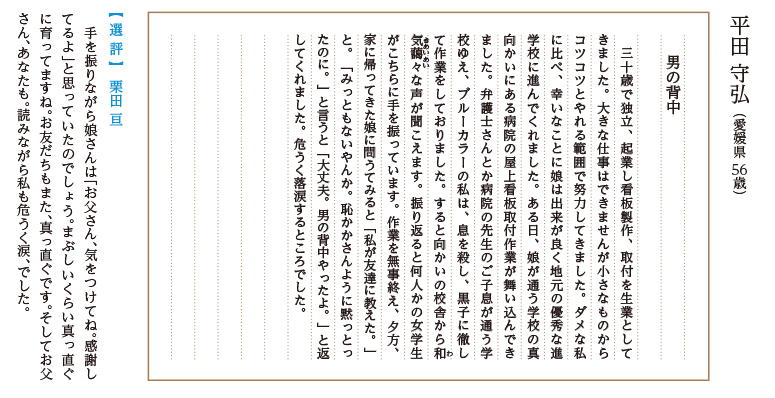 平田 守弘（愛媛県 56歳）
男の背中
三十歳で独立、起業し看板製作、取付を生業として
きました。大きな仕事はできませんが小さなものから
コツコツとやれる範囲で努力してきました。ダメな私
に比べ、幸いなことに娘は出来が良く地元の優秀な進
学校に進んでくれました。ある日、娘が通う学校の真
向かいにある病院の屋上看板取付作業が舞い込んでき
ました。弁護士さんとか病院の先生のご子息が通う学
校ゆえ、ブルーカラーの私は、息を殺し、黒子に徹し
て作業をしておりました。すると向かいの校舎から和
気靄々な声が聞こえます。振り返ると何人かの女学生
がこちらに手を振っています。作業を無事終え、夕方、
家に帰ってきた娘に問うてみると「私が友達に教えた。」
と。「みっともないやんか。恥かかさんように黙っとっ
たのに。」と言うと「大丈夫。男の背中やったよ。」と返
してくれました。危うく落涙するところでした。
わ
きあいあい
【選評】 栗田 亘
手を振りながら娘さんは「お父さん、気をつけてね。感謝し
てるよ」と思っていたのでしょう。まぶしいくらい真っ直ぐ
に育ってますね。お友だちもまた、真っ直ぐです。そしてお父
さん、あなたも。読みながら私も危うく涙、でした。